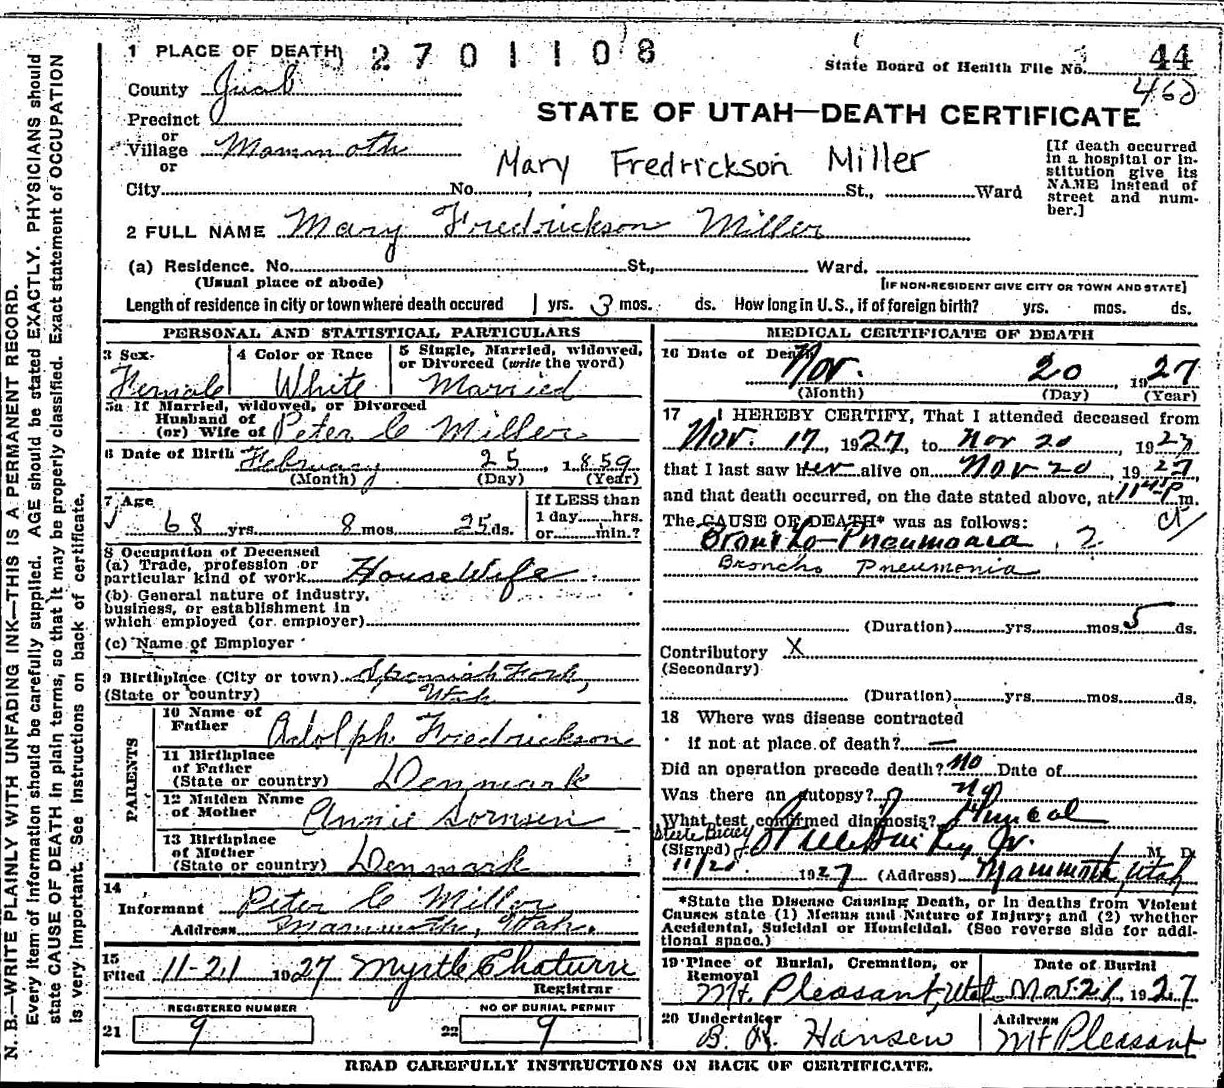 1 PLACE OF DEATH 2701108
State Board of Health File No. 44
460
County Juab
STATE OF UTAH—DEATH CERTIFICATE
Precinct
or
Village Mammoth
or
Mary Fredrickson Miller
City No. , St., Ward
[If death occurred
in a hospital or in-
stitution give its
NAME instead of
street and num-
ber.]
2 FULL NAME Mary Fredrickson Miller
(a) Residence. No. St., Ward.
(Usual place of abode)
[IF NON-RESIDENT GIVE CITY OR TOWN AND STATE]
Length of residence in city or town where death occured 1 yrs. 3 mos. ds. How long in U.S., if of foreign birth? yrs. mos. ds.
PERSONAL AND STATISTICAL PARTICULARS
3 Sex
Female
4 Color or Race
White
5 Single, Married, widowed,
or Divorced (write the word)
Married
5a If Married, widowed, or Divorced
Husband of
(or) Wife of Peter C Miller
6 Date of Birth February 25, 1859
(Month) (Day) (Year)
7 Age
68 yrs. 8 mos. 25 ds.
If LESS than
1 day hrs.
or min.?
8 Occupation of Deceased
(a) Trade, profession or
particular kind of work House Wife
(b) General nature of industry,
business, or establishment in
which employed (or employer)
(c) Name of Employer
9 Birthplace (City or town) Spanish Fork,
(State or country) Utah
PARENTS
10 Name of
Father Adolph Fredrickson
11 Birthplace
of Father
(State or country) Denmark
12 Maiden Name
of Mother Annie Sornsen
13 Birthplace
of Mother
(State or country) Denmark
14
Informant Peter C Miller
Address Mammoth, Utah.
15
Filed 11-21 1927 Myrtle
Registrar
REGISTERED NUMBER
21 9
NO OF BURIAL PERMIT
22 9
MEDICAL CERTIFICATE OF DEATH
16 Date of Death
Nov. 20, 1927
(Month) (Day) (Year)
17 I HEREBY CERTIFY, That I attended deceased from
Nov. 17, 1927, to Nov 20, 1927
that I last saw her alive on Nov 20, 1927,
and that death occurred, on the date stated above, at m.
The CAUSE OF DEATH* was as follows:
Broncho-Pneumonia. ?
Broncho Pneumonia
(Duration) yrs. mos. 5 ds.
Contributory X
(Secondary)
(Duration) yrs. mos. ds.
18 Where was disease contracted
if not at place of death? —
Did an operation precede death? No Date of
Was there an autopsy? No
What test confirmed diagnosis?
Steele Bailey
(Signed) Steele Bailey Jr. M. D.
11/20 1927 (Address) Mammoth, Utah
*State the Disease Causing Death, or in deaths from Violent
Causes state (1) Means and Nature of Injury; and (2) whether
Accidental, Suicidal or Homicidal. (See reverse side for addi-
tional space.)
19 Place of Burial, Cremation, or
Removal
Mt. Pleasant, Utah
Date of Burial
Nov. 21, 1927
20 Undertaker
Hansen
Address
Mt Pleasant
READ CAREFULLY INSTRUCTIONS ON BACK OF CERTIFICATE.
N. B.—WRITE PLAINLY WITH UNFADING INK—THIS IS A PERMANENT RECORD.
Every item of information should be carefully supplied. AGE should be stated EXACTLY. PHYSICIANS should
state CAUSE OF DEATH in plain terms, so that it may be properly classified. Exact statement of OCCUPATION
is very important. See instructions on back of certificate.